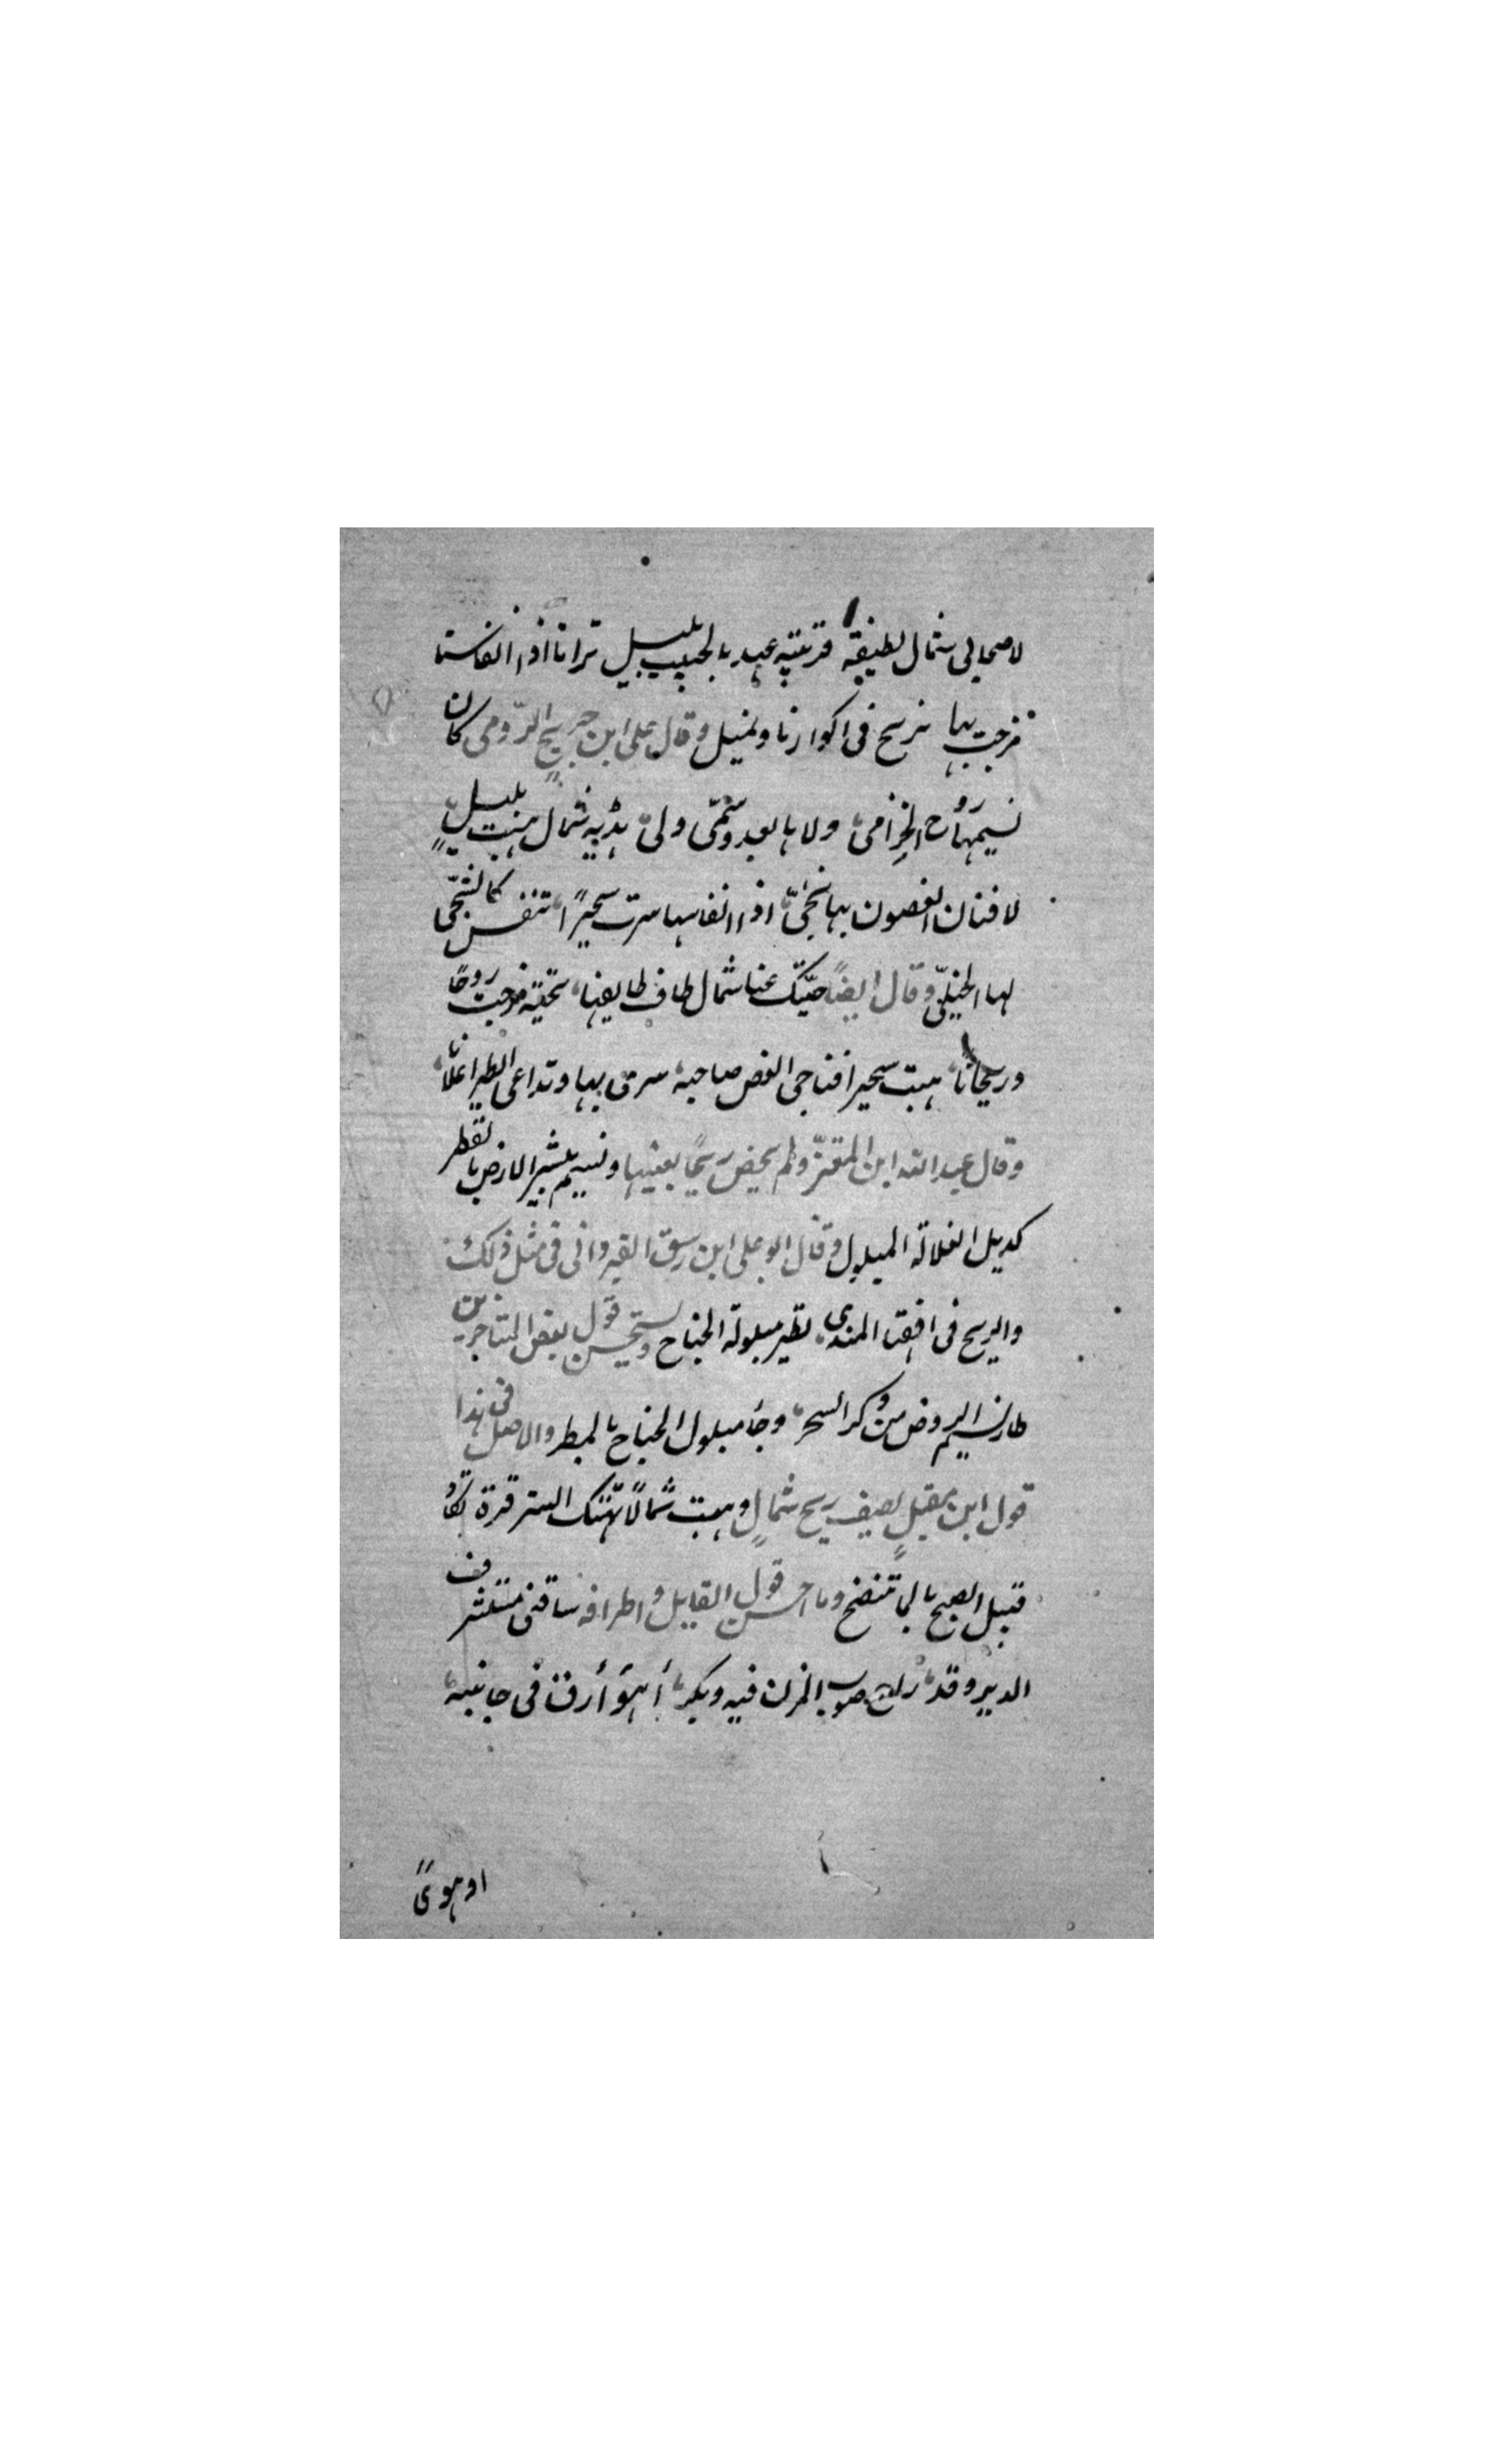 لاصحابى شمال لطيفة قريبته عهد بالحبيب بليل ترانا اذا انفاسنا
مزجت بها نرنح فى اكوارنا ونميل وقال على ابن جريح الرّومى كان
نسيمها روح الخزامى ولاها بعد وسمّى ولىّ هدية شمال هبت بليل
لافنان الغصون بها نجىّ اذا انفاسها سرت سحيرًا تنفس كالشجّى
لها الخلىّ وقال ايضًا حيّتك عنا شمال طاف طايفها تحيّة مزجت روحًا
وريحانًا هبت سحيرا فناجى الغصن صاحبه سرى بها وتداعى الطير اعلانًا
وقال عبد الله ابن المعتزّ ولم يخص ريحًا بعينها ونسيم يبشر الارض بالقطر
كذيل الغلالة المبلول وقال ابو على ابن رشيق القيروانى فى مثل ذلك
والريح فى افقنا المندى تطير مبلولة الجناح ويستحسن قول بعض المتاخرين
طار نسيم الروض من وكر السحر وجاء مبلول الجناح بالمطر والاصل فى هذا
قول ابن مقبل يصف ريح شمال وهبت شمالًا تهتك الستر قرة تكاد
قبيل الصبح بالماء تنضح وما احسن قول القايل واطرافه ساقنى مستشرف
الدير وقد راح صوب المزن فيه وبكر أهوأ أرق فى جانبيه
او هوىً